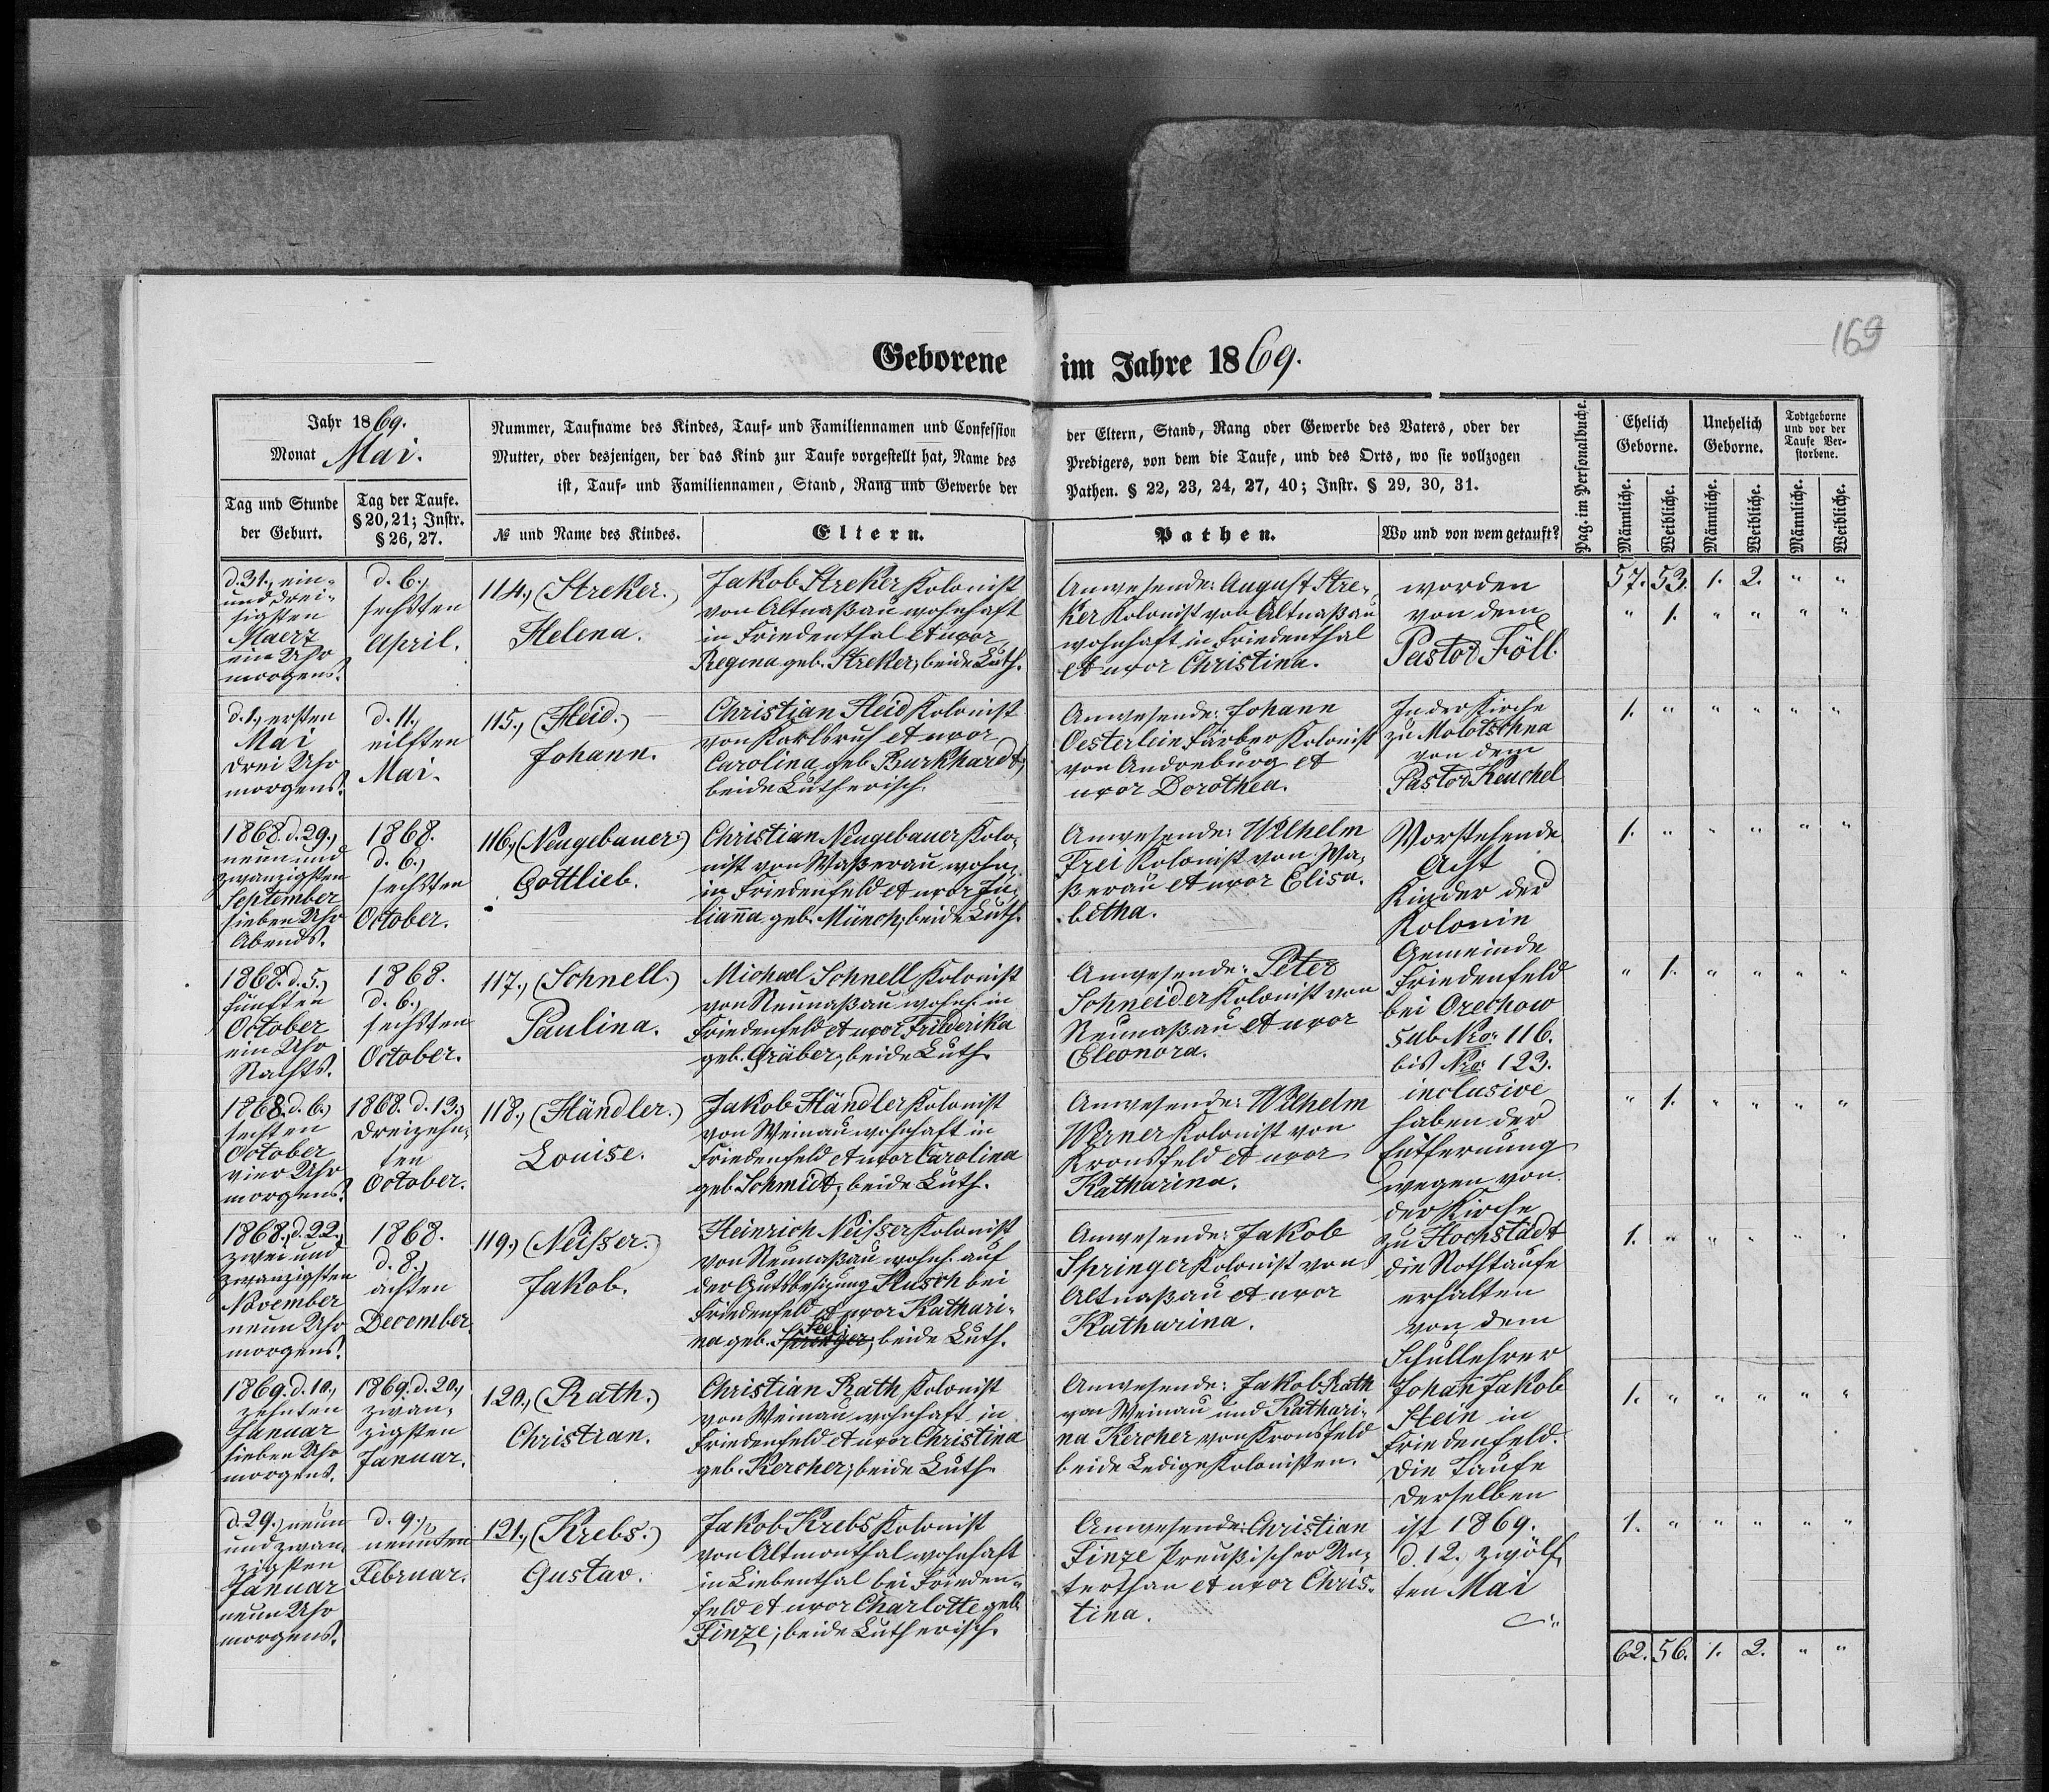 169
Geborene im Jahre 1869.
Jahr 1869.
Monat Mai.
Tag und Stunde
der Geburt.
Tag der Taufe.
§ 20, 21; Instr.
§ 26, 27.
Nummer, Taufname des Kindes, Tauf- und Familiennamen und Confession
Mutter, oder desjenigen, der das Kind zur Taufe vorgestellt hat, Name des
ist, Tauf- und Familiennamen, Stand, Rang und Gewerbe der
№ und Name des Kindes.
Eltern.
der Eltern, Stand, Rang oder Gewerbe des Vaters, oder der
Predigers, von dem die Taufe, und des Orts, wo sie vollzogen
Pathen. § 22, 23, 24, 27, 40; Instr. § 29, 30, 31.
Pathen.
Wo und von wem getauft?
Pag. im Personalbuche.
Ehelich
Geborne.
Unehelich
Geborne.
Todtgeborne
und vor der
Taufe Ver-
storbene.
Männliche.
Weibliche.
Männliche.
Weibliche.
Männliche.
Weibliche.
d. 31., ein-
und drei-
sigsten
Maerz
ein Uhr
morgens.
d. 6.,
sechsten
April.
114., (Streker.)
Helena.
Jakob Streker Kolonist
von Altnaßau wohnhaft
in Friedenthal et uxor
Regina geb. Streker, beide Luth.
Anwesende: August Stre-
ker Kolonist von Altnaßau
wohnhaft in Friedenthal
et uxor Christina.
worden
von dem
Pastor Föll.
57. 53. 1. 2. " "
" 1. " " " "
d. 1., ersten
Mai
drei Uhr
morgens.
d. 11.,
eilften
Mai.
115., (Heid.)
Johann.
Christian Heid Kolonist
von Karlsruh et uxor
Carolina geb. Burkhardt,
beide Lutherisch.
Anwesende: Johann
Oesterlein Färber Kolonist
von Andreburg et
uxor Dorothea.
In der Kirche
zu Molotschna
von dem
Pastor Keuchel
1. " " " " "
1868. d. 29.,
neun und
zwanzigsten
September
sieben Uhr
Abends.
1868.
d. 6.,
sechsten
October.
116., (Neugebauer.)
Gottlieb.
Christian Neugebauer Kolo-
nist von Waßerau wohn.
in Friedenfeld et uxor Ju-
lianna geb. Münch, beide Luth.
Anwesende: Wilhelm
Frei Kolonist von Wa-
ßerau et uxor Elisa-
betha.
1. " " " " "
1868. d. 5.,
fünften
October
ein Uhr
Nachts.
1868.
d. 6.,
sechsten
October.
117., (Schnell.)
Paulina.
Michael Schnell Kolonist
von Neunaßau wohnh. in
Friedenfeld et uxor Friderika
geb. Gräber, beide Luth.
Anwesende: Peter
Schneider Kolonist von
Neunaßau et uxor
Eleonora.
" 1. " " " "
1868. d. 6.,
sechsten
October
vier Uhr
morgens.
1868. d. 13.,
dreizehn-
ten
October.
118., (Händler.)
Louise.
Jakob Händler Kolonist
von Weinau wohnhaft in
Friedenfeld et uxor Carolina
geb. Schmidt, beide Luth.
Anwesende: Wilhelm
Werner Kolonist von
Kronsfeld et uxor
Katharina.
" 1. " " " "
1868., d. 22.,
zwei und
zwanzigsten
November
neun Uhr
morgens.
1868.
d. 8.,
achten
December.
119., (Neisser.)
Jakob.
Heinrich Neisser Kolonist
von Neunaßau wohnh. auf
der Gutsbesizung Kusch bei
Friedenfeld et uxor Kathari-
na geb. Springer, beide Luth.
Anwesende: Jakob
Springer Kolonist von
Altnaßau et uxor
Katharina.
1. " " " " "
1869. d. 10.,
zehnten
Januar
sieben Uhr
morgens.
1869. d. 20.,
zwan-
zigsten
Januar.
120., (Rath.)
Christian.
Christian Rath Kolonist
von Weinau wohnhaft in
Friedenfeld et uxor Christina
geb. Kercher, beide Luth.
Anwesende: Jakob Rath
von Weinau und Kathari-
na Kercher von Kronsfeld
beide Ledige Kolonisten.
1. " " " " "
d. 29., neun
und zwan-
zigsten
Januar
neun Uhr
morgens.
d. 9.,
neunten
Februar.
121., (Krebs.)
Gustav.
Jakob Krebs Kolonist
von Altmonthal wohnhaft
in Liebenthal bei Frieden-
feld et uxor Charlotte geb.
Finze, beide Lutherisch.
Anwesende: Christian
Finze Preußischer Un-
terthan et uxor Chris-
tina.
Vorstehende
Acht
Kinder der
Kolonie
Gemeinde
Friedenfeld
bei Orechow
sub Nro: 116.
bis Nro: 123.
inclusive
haben der
Entfernung
wegen von
der Kirche
zu Hochstädt
die Nothtaufe
erhalten
von dem
Schullehrer
Johan Jakob
Stein in
Friedenfeld.
Die Taufe
derselben
ist 1869.
d. 12., zwölf-
ten Mai
1. " " " " "
62. 56. 1. 2. " "